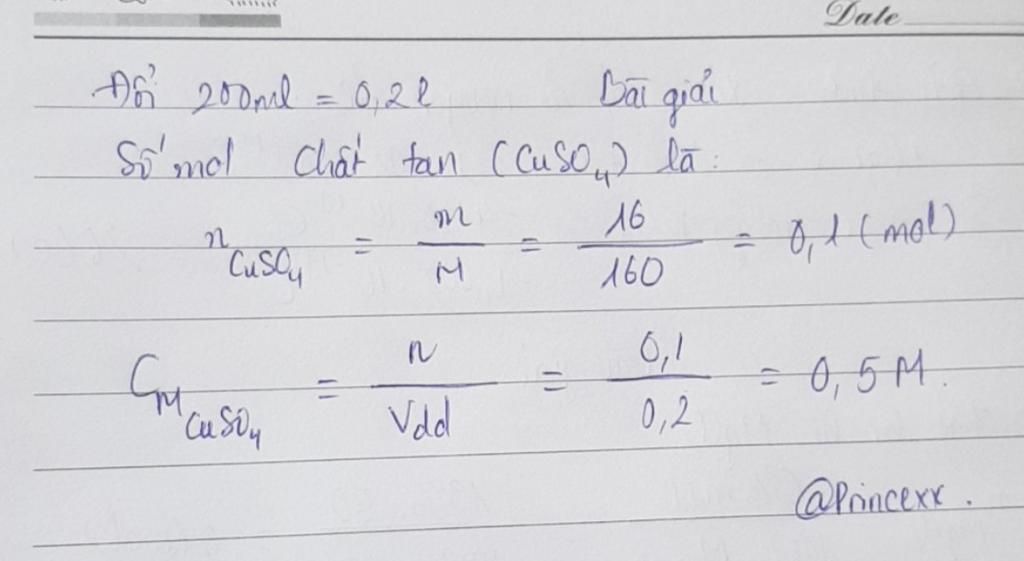 Date
Đổi 200ml = 0,2l Bài giải
Số mol chất tan (CuSO₄) là:
n CuSO₄ = m/M = 16/160 = 0,1 (mol)
C_M CuSO₄ = n/Vdd = 0,1/0,2 = 0,5 M.
@Princexx.